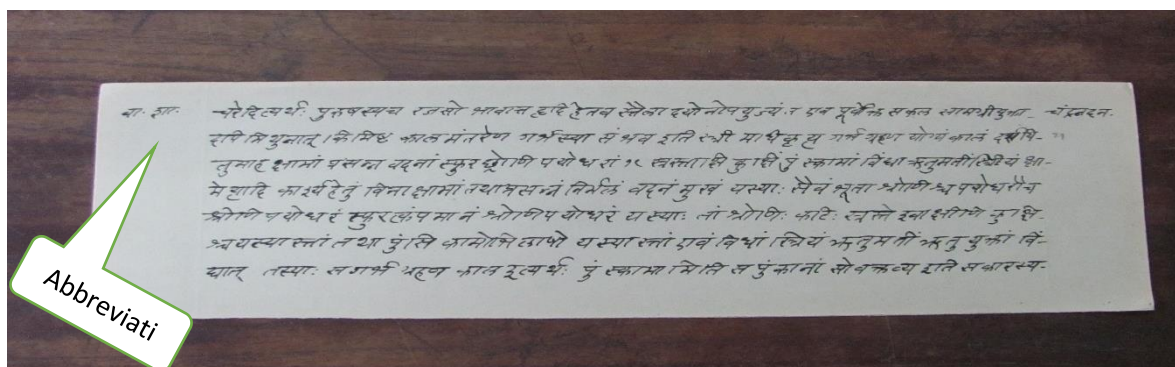 वा. शा.
चरेदित्यर्थः पुरुषस्यच रजसो भावान्न हेतव स्तेला एव पूर्वोक्त सकल सामग्रीयुक्ता- चंद्रचदन.
दपि मिथुनात् किमिष्ट कालमंतरेण गर्भस्या संभव इति स्त्री माधिकृत्य गर्भग्रहण योग्यं कालं दर्शयि-
तुमाह क्षामां प्रसन्न वदनां स्फुरछ्रोणि पयोधरां १८ स्रस्ताक्षि कुक्षिं पुं स्कामां विंद्या ऋतुमतीं स्त्रियं
हेतुं विना क्षामां तथा प्रसन्नं निर्मलं वदनं मुखं यस्याः सैवं भूता श्रोणिश्च पयोधरौच
श्रोणि पयोधरं स्फुरत्कंपमानं श्रोणिपयोधरं यस्याः तां श्रोणिः कटिः स्रस्ते इवाक्षीणि कुक्षि-
श्चयस्यास्तां तथा पुंसि कामोभिलाषो यस्यास्तां एवं विधां स्त्रियं ऋतुमतीं ऋतुयुक्तां विं-
द्यात् तस्याः सगर्भ ग्रहण काल इत्यर्थः पुं स्कामामिति सपुंकानां सो वक्तव्य इति सकारस्य-
Abbreviati